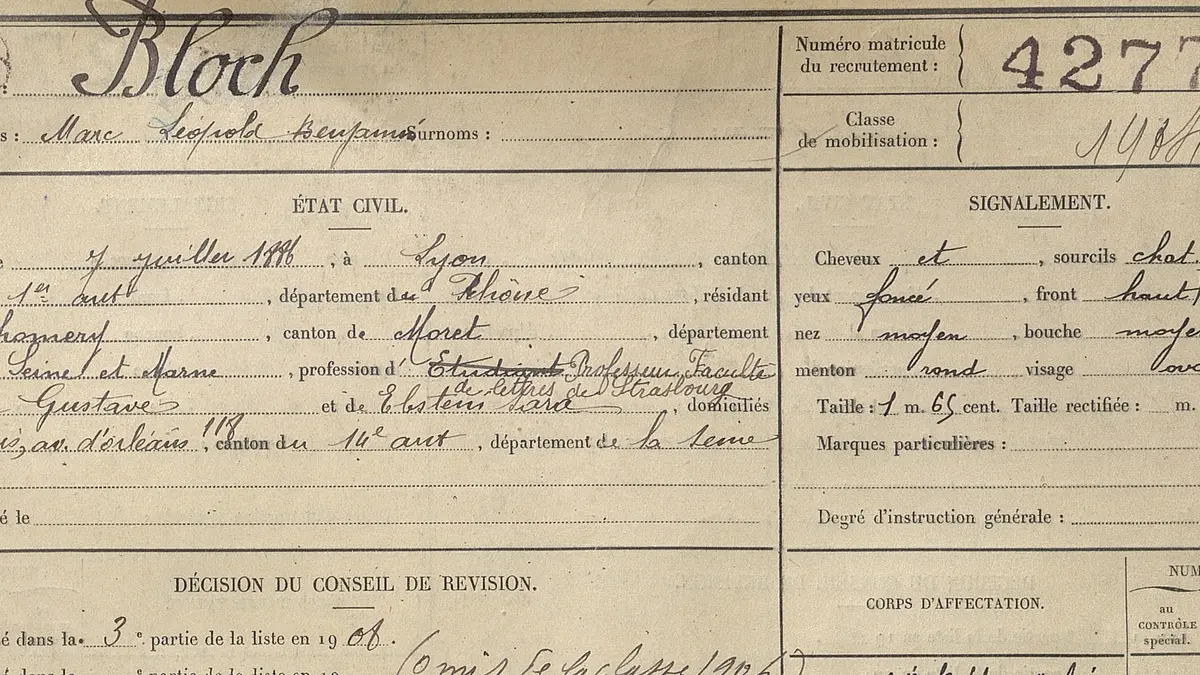 Bloch
Numéro matricule
du recrutement :
4277
s : Marc Léopold Benjamin Surnoms :
Classe
de mobilisation :
ÉTAT CIVIL.
7 juillet 1886, à Lyon, canton
1er arrt, département du Rhône, résidant
homery, canton de Moret, département
Seine et Marne, profession d' Etudiant Professeur Faculté
de lettres de Strasbourg
Gustave et de Ebstein Sara, domiciliés
av. d'orléans 118, canton du 14e arrt, département de la Seine
é le
SIGNALEMENT.
Cheveux et, sourcils chat.
yeux foncé, front haut
nez moyen, bouche moye
menton rond visage ova
Taille : 1 m. 65 cent. Taille rectifiée : m.
Marques particulières :
Degré d'instruction générale :
DÉCISION DU CONSEIL DE REVISION.
é dans la 3e partie de la liste en 1908.
é dans la e partie de la liste en 19
(Omis de la classe 1906)
CORPS D'AFFECTATION.
NUM
au
CONTRÔLE
spécial.